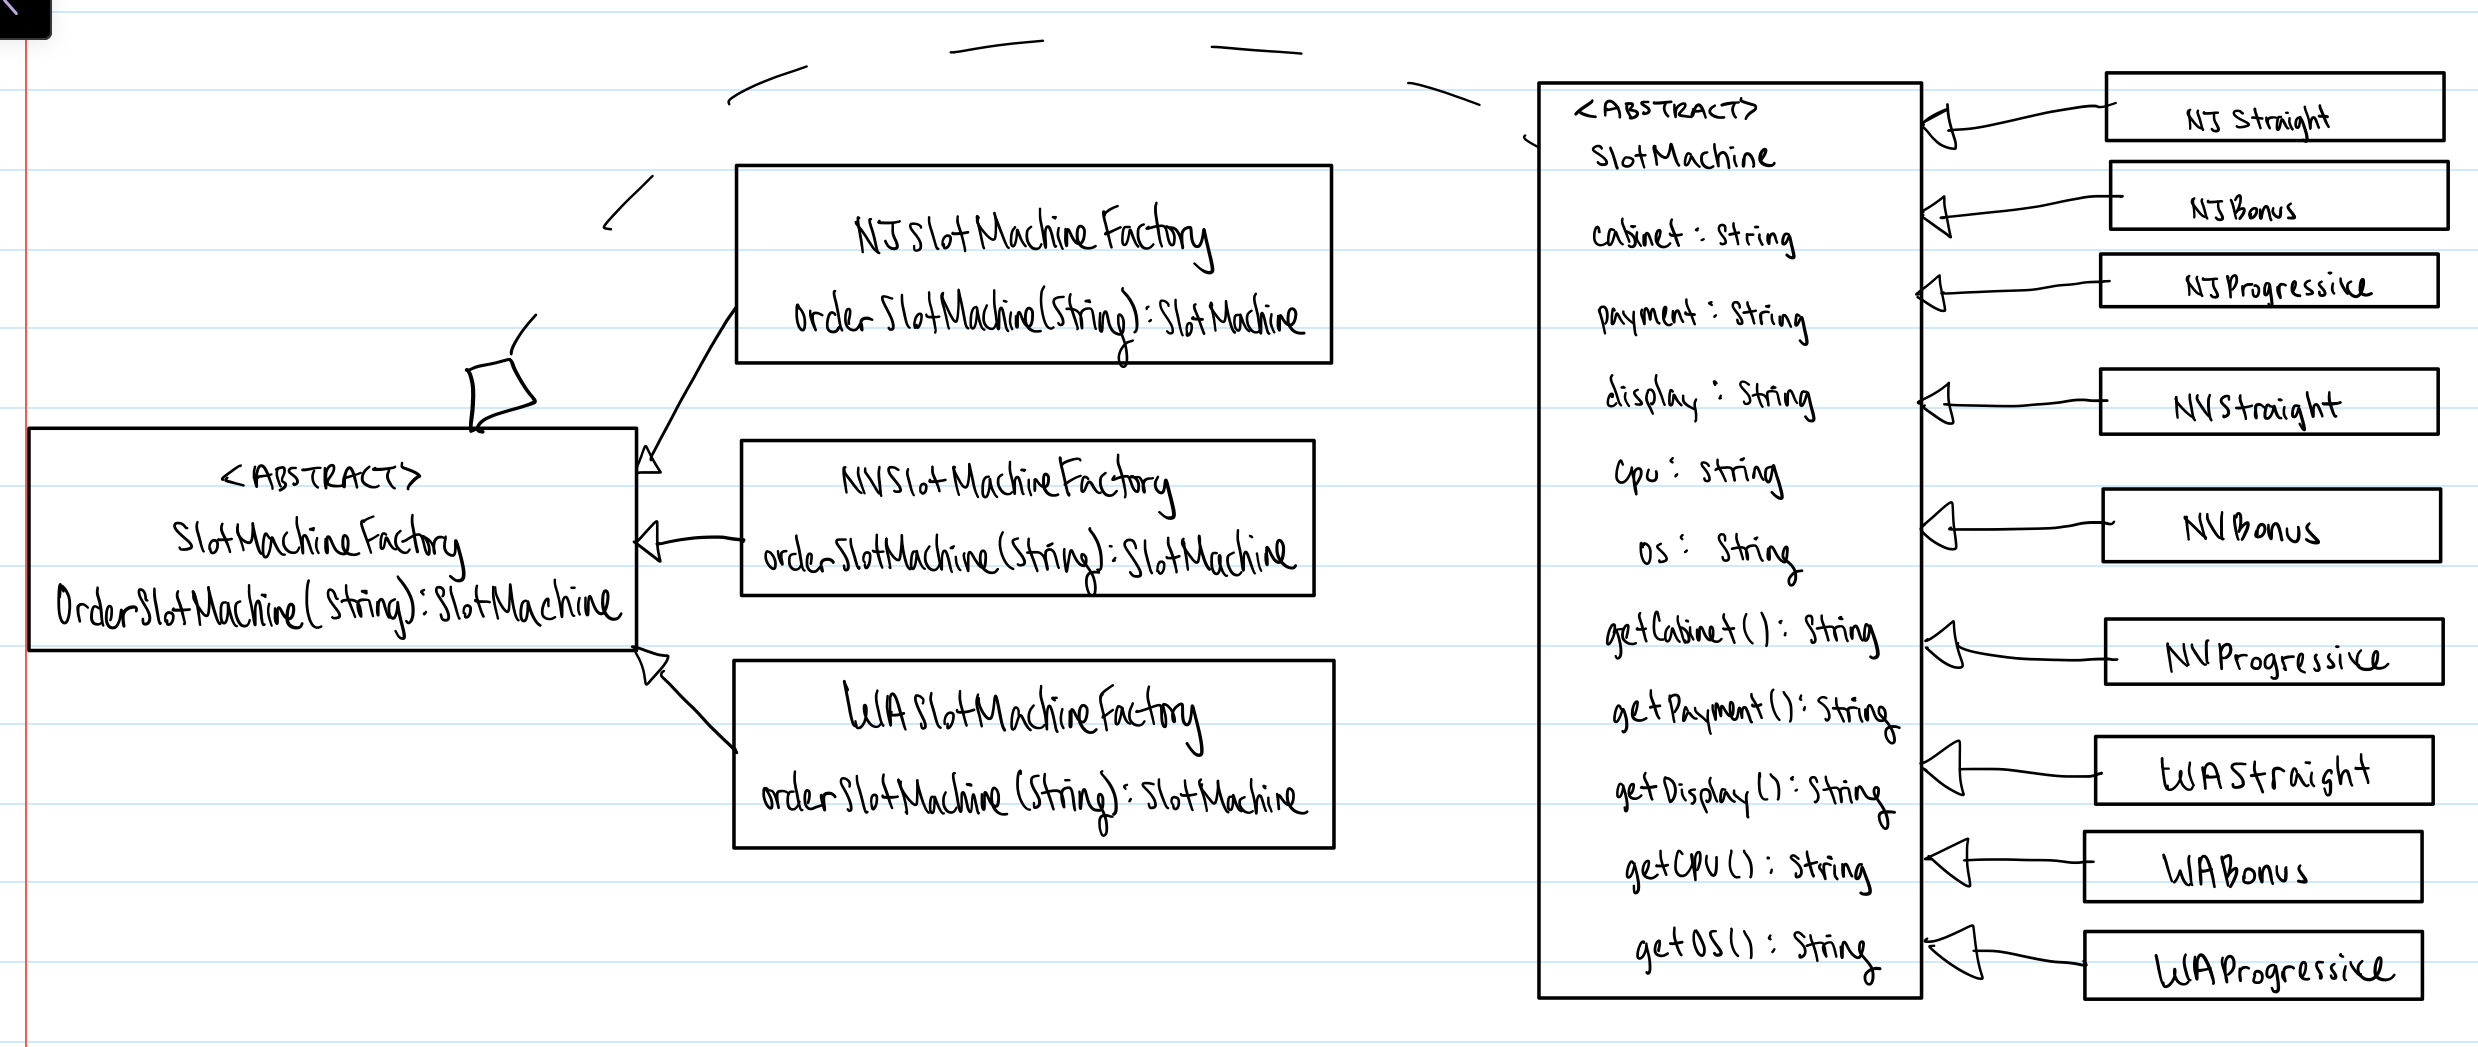 <ABSTRACT>
SlotMachineFactory
OrderSlotMachine(String): SlotMachine
NJSlotMachineFactory
orderSlotMachine(String): SlotMachine
NVSlotMachineFactory
orderSlotMachine(String): SlotMachine
WASlotMachineFactory
orderSlotMachine(String): SlotMachine
<ABSTRACT>
SlotMachine
cabinet: String
payment: String
display: String
cpu: String
os: String
getCabinet(): String
getPayment(): String
getDisplay(): String
getCPU(): String
getOS(): String
NJStraight
NJBonus
NJProgressive
NVStraight
NVBonus
NVProgressive
WAStraight
WABonus
WAProgressive